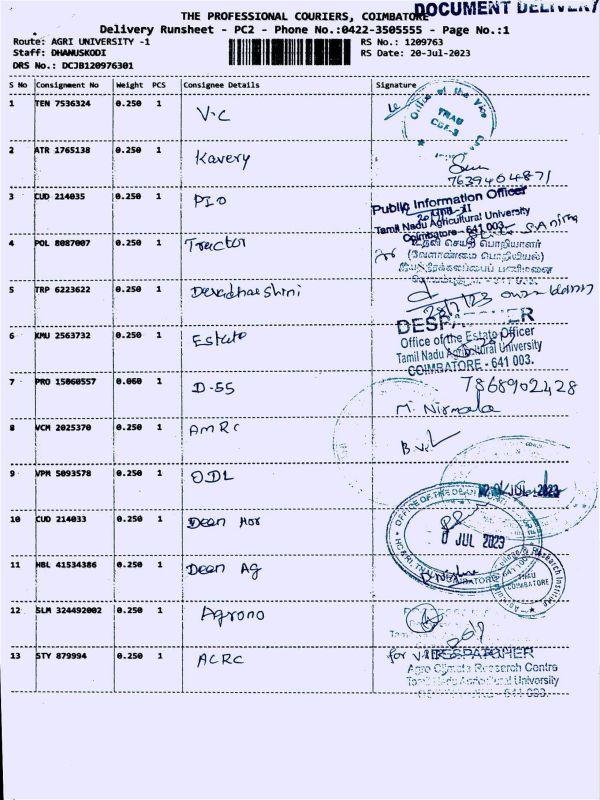 DOCUMENT DELIVERY
THE PROFESSIONAL COURIERS, COIMBATORE
Delivery Runsheet - PC2 - Phone No.:0422-3505555 - Page No.:1
Route: AGRI UNIVERSITY -1 RS No.: 1209763
Staff: DHANUSKODI RS Date: 20-Jul-2023
DRS No.: DCJB120976301
S No Consignment No Weight PCS Consignee Details Signature
1 TEN 7536324 0.250 1 V.C
Office of the Vice
TNAU
CBE-3
2 ATR 1765138 0.250 1 Kavery
7639404871
3 CUD 214035 0.250 1 PIO
Public Information Officer
Tamil Nadu Agricultural University
Coimbatore - 641 003.
4 POL 8087007 0.250 1 Tractor
உதவி செயற் பொறியாளர்
(வேளாண்மை பொறியியல்)
5 TRP 6223622 0.250 1 Devadharshini
6 KMU 2563732 0.250 1 Estate
Office of the Estate Officer
Tamil Nadu Agricultural University
COIMBATORE - 641 003.
7 PRO 15060557 0.060 1 D-55
7868902428
M. Nirmala
8 VCM 2025370 0.250 1 AMRC
9 VPM 5093578 0.250 1 ODL
JUL 2023
10 CUD 214033 0.250 1 Dean Hor
OFFICE OF THE DEAN
JUL 2023
11 HBL 41534386 0.250 1 Dean Ag
TNAU
COIMBATORE
12 SLM 324492002 0.250 1 Agrono
13 STY 879994 0.250 1 ACRC
for DESPATCHER
Agro Climate Research Centre
Tamil Nadu Agricultural University